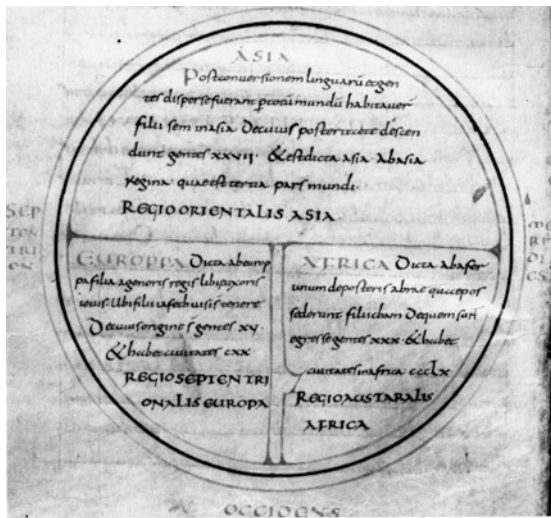 ASIA
Post conversionem linguarū et gen
tes disperse fuerant p totū mundū habitaver̄
filii sem in asia De cuius posteritate descen
dunt gentes XXVII · & est dicta asia ab asia
regina quae est tertia pars mundi
REGIO ORIENTALIS ASIA
SEP
TEN
TRI
ON
ME
RI
DI
ES
EUROPPA Dicta ab europ
pa filia agenoris regis libie uxoris
iovis Ubi filii iafeth visi s tenere
De cuius origine s̄ gentes XV ·
& habet civitates CXX
REGIO SEPTENTRI
ONALIS EUROPA
AFRICA Dicta ab afer
unum de posteris abrae que cepos
sederunt filii cham De quem sun̄
egresse gentes XXX · & habet
civitates in africa CCCLX
REGIO AUSTARALIS
AFRICA
OCCIDENS